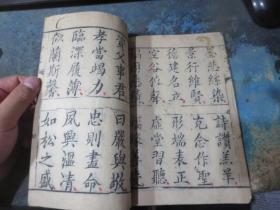 墨悲絲染
詩讚羔羊
景行維賢
克念作聖
德建名立
形端表正
空谷傳聲
虛堂習聽
資父事君
曰嚴與敬
孝當竭力
忠則盡命
臨深履薄
夙興溫凊
似蘭斯馨
如松之盛